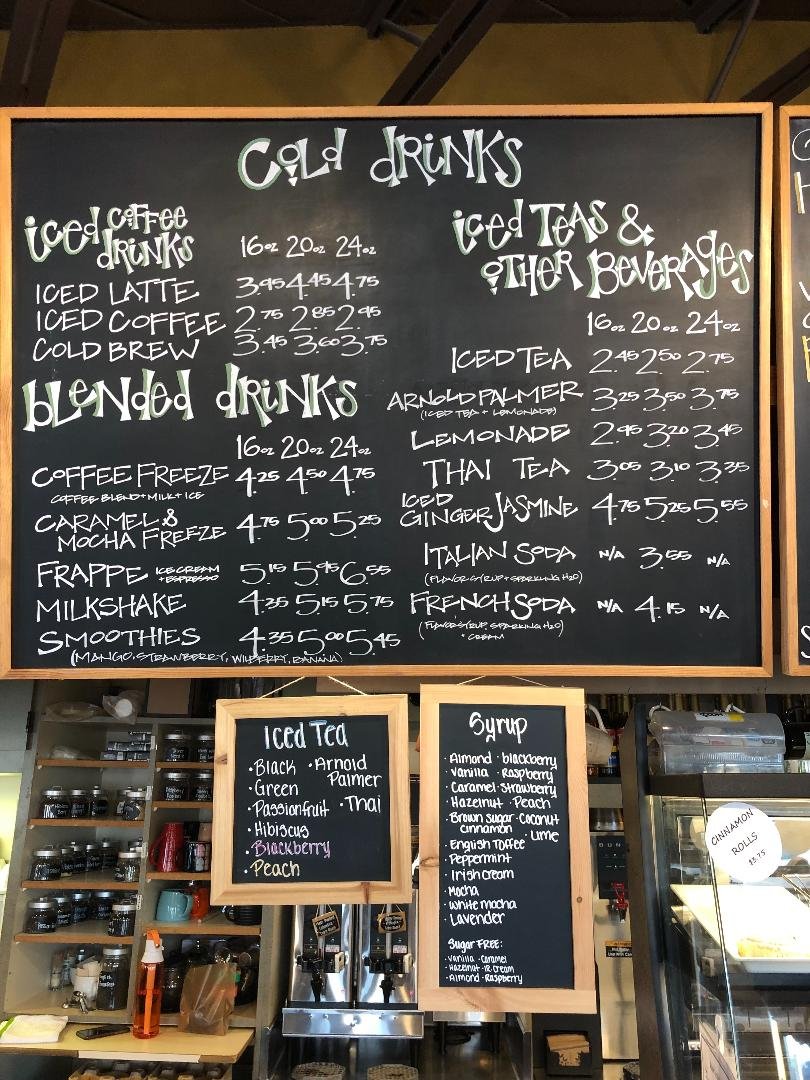 Cold drinks
iced coffee drinks
16oz 20oz 24oz
ICED LATTE 3.95 4.45 4.75
ICED COFFEE 2.75 2.85 2.95
COLD BREW 3.45 3.60 3.75
blended drinks
16oz 20oz 24oz
COFFEE FREEZE 4.25 4.50 4.75
COFFEE BLEND + MILK + ICE
CARAMEL & MOCHA FREEZE 4.75 5.00 5.25
FRAPPE ICE CREAM + ESPRESSO 5.15 5.95 6.55
MILKSHAKE 4.35 5.15 5.75
SMOOTHIES 4.35 5.00 5.45
(MANGO, STRAWBERRY, WILDBERRY, BANANA)
iced TEAS &
OTHER BEVERAGES
16oz 20oz 24oz
ICED TEA 2.45 2.50 2.75
ARNOLD PALMER 3.25 3.50 3.75
(ICED TEA + LEMONADE)
LEMONADE 2.95 3.20 3.45
THAI TEA 3.05 3.10 3.35
ICED GINGER JASMINE 4.75 5.25 5.55
ITALIAN SODA N/A 3.55 N/A
(FLAVOR SYRUP + SPARKLING H2O)
FRENCH SODA N/A 4.15 N/A
(FLAVOR SYRUP, SPARKLING H2O)
+ CREAM
Iced Tea
· Black
· Green
· Passionfruit
· Hibiscus
· Blackberry
· Peach
· Arnold
Palmer
· Thai
Syrup
· Almond · blackberry
· Vanilla · Raspberry
· Caramel · Strawberry
· Hazelnut · Peach
· Brown sugar · Coconut
cinnamon · Lime
· English Toffee
· Peppermint
· Irish cream
· Mocha
· White mocha
· Lavender
Sugar FREE:
· Vanilla · Caramel
· Hazelnut · IR. Cream
· Almond · Raspberry
CINNAMON
ROLLS
$3.75
BUN